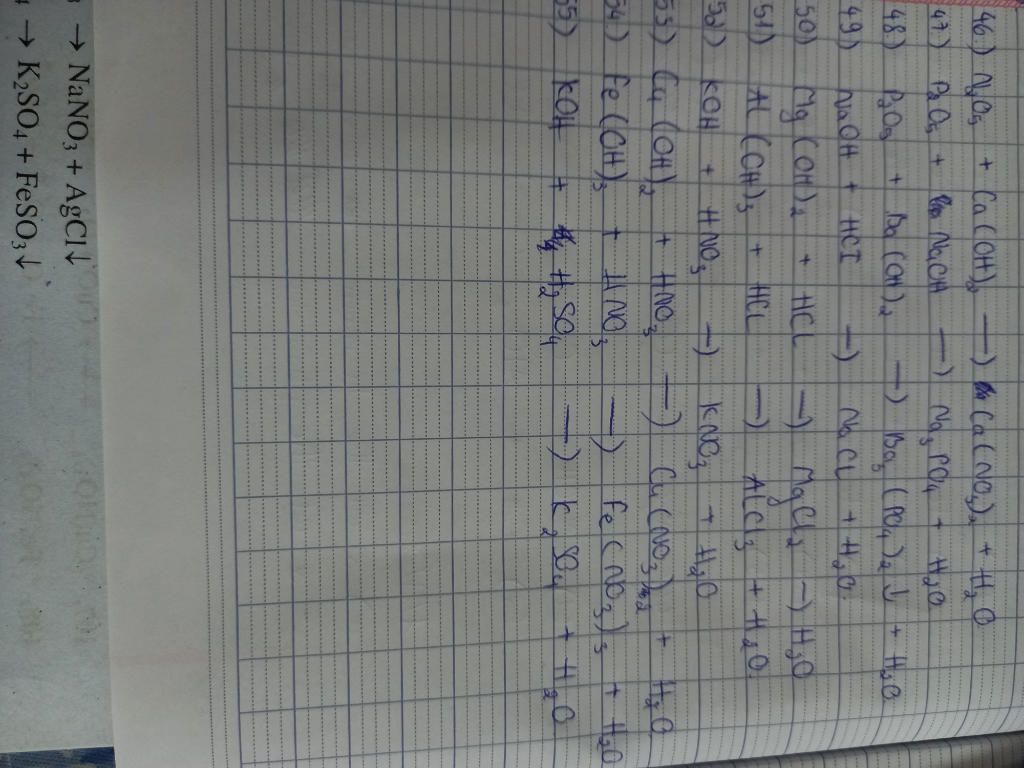 46) N₂O₅ + Ca(OH)₂ —) Ca(NO₃)₂ + H₂O
47) P₂O₅ + NaOH —) Na₃PO₄ + H₂O
48) P₂O₅ + Ba(OH)₂ —) Ba₃(PO₄)₂ ↓ + H₂O
49) NaOH + HCl —) NaCl + H₂O
50) Mg(OH)₂ + HCl —) MgCl₂ —) H₂O
51) Al(OH)₃ + HCl —) AlCl₃ + H₂O
52) KOH + HNO₃ —) KNO₃ + H₂O
53) Cu(OH)₂ + HNO₃ —) Cu(NO₃)₂ + H₂O
54) Fe(OH)₃ + HNO₃ —) Fe(NO₃)₃ + H₂O
55) KOH + H₂SO₄ —) K₂SO₄ + H₂O
→ NaNO₃ + AgCl↓
→ K₂SO₄ + FeSO₃↓